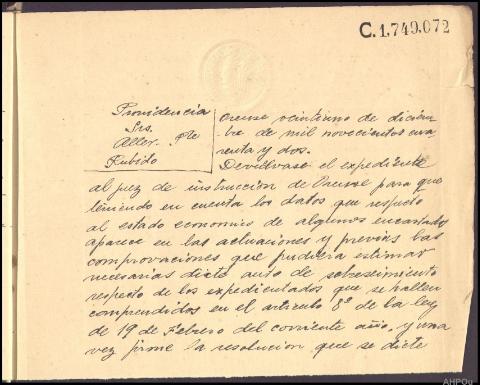 C.1.749.072
Providencia
Srs.
Aller. Pte
Rubido
Orense veintiuno de diciem
bre de mil novecientos cua
renta y dos.
Devuélvase el expediente
al juez de instrucción de Orense para que
teniendo en cuenta los datos que respecto
al estado economico de algunos encartados
aparece en las actuaciones y previas las
comprovaciones que pudiera estimar
necesarias dicte auto de sobreseimiento
respecto de los expedientados que se hallen
comprendidos en el articulo 8º de la ley
de 19 de Febrero del corriente año, y una
vez firme la resolucion que se dicte
AHPOu